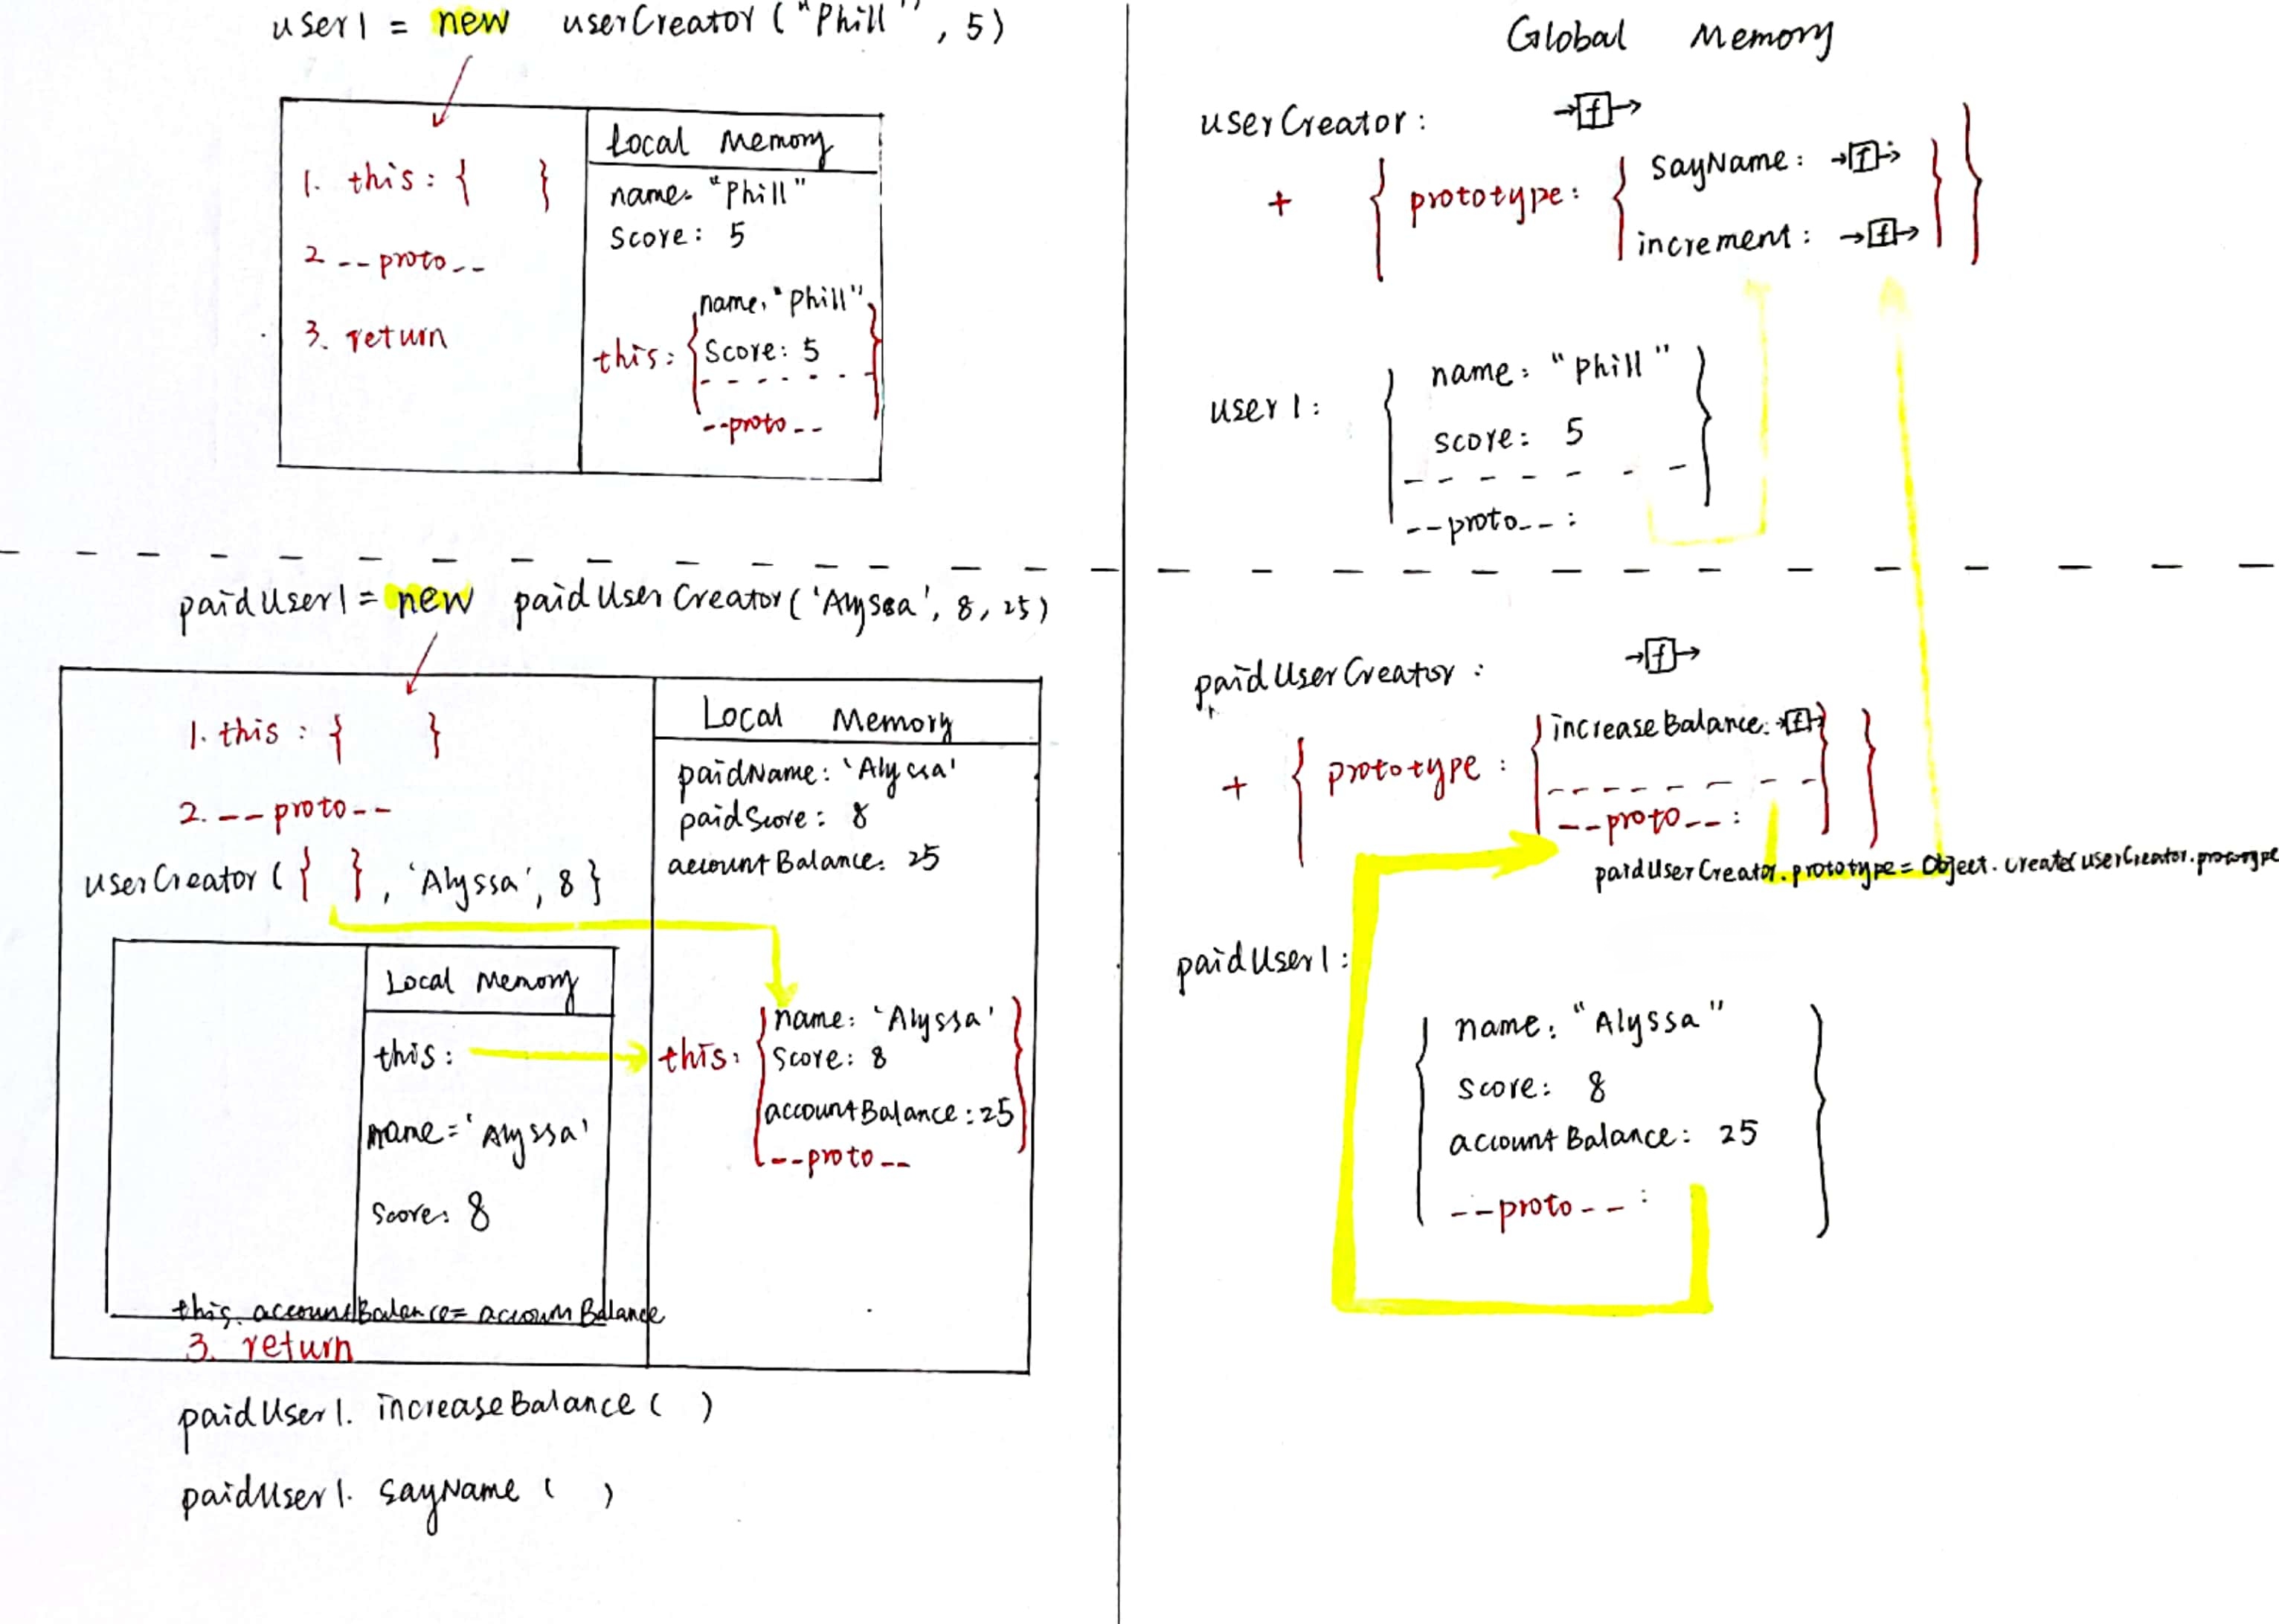 user1 = new userCreator ("Phill", 5)
1. this: { }
2 __proto__
3. return
Local Memory
name: "Phill"
Score: 5
this: { name: "Phill"
Score: 5
- - - - - - -
__proto__ }
paidUser1 = new paidUserCreator('Alyssa', 8, 25)
1. this: { }
2. __proto__
userCreator ( { }, 'Alyssa', 8 }
Local Memory
this:
name = 'Alyssa'
Score: 8
this. accountBalance = accounBalance
3. return
Local Memory
paidName: 'Alyssa'
paidScore: 8
accountBalance: 25
this: { name: 'Alyssa'
Score: 8
accountBalance: 25
__proto__ }
paidUser1. increaseBalance ( )
paidUser1. sayName ( )
Global Memory
userCreator: →[f]→
+ { prototype: { sayName: →[f]→
increment: →[f]→ } }
user1: { name: "Phill"
score: 5
- - - - - - - -
__proto__: }
paidUserCreator: →[f]→
+ { prototype: { increaseBalance: →[f]→
- - - - - - - -
__proto__: } }
paidUserCreator.prototype = Object.create(userCreator.prototype
paidUser1:
{ name: "Alyssa"
score: 8
accountBalance: 25
__proto__: }